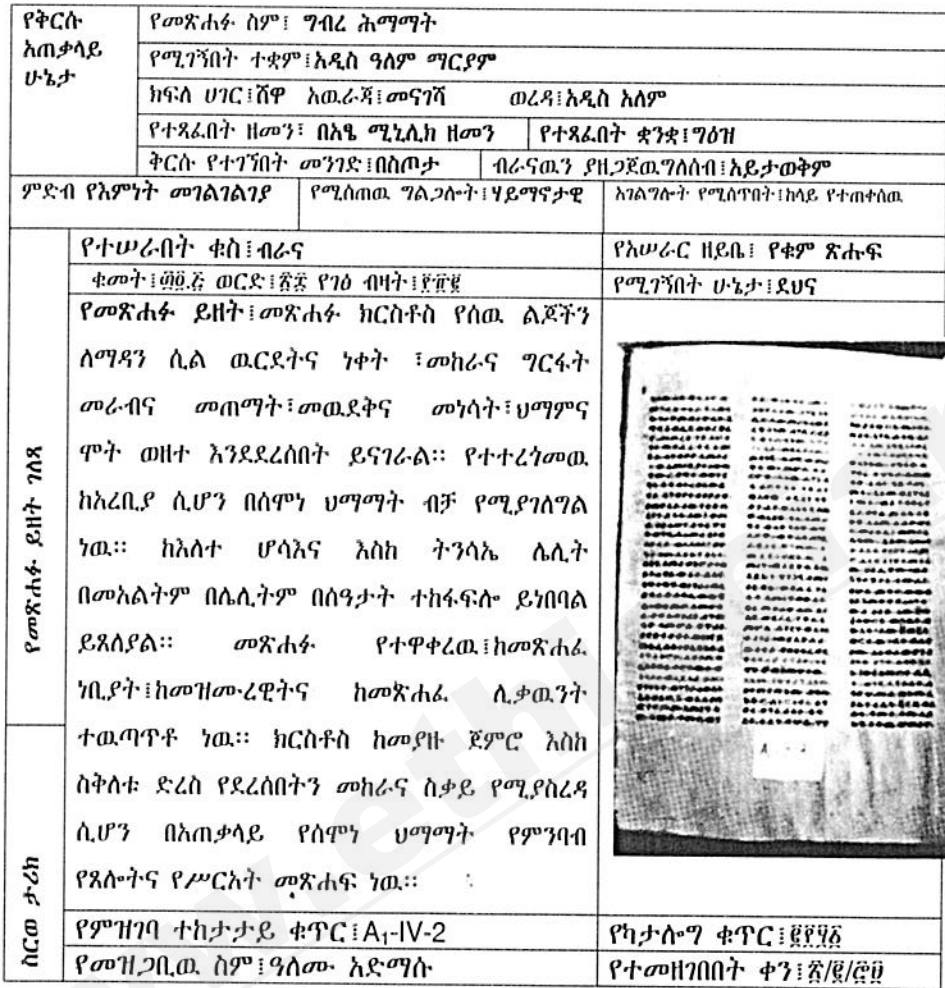 የቅርሱ አጠቃላይ ሁኔታ
የመጽሐፉ ስም፤ ግብረ ሕማማት
የሚገኝበት ተቋም፤አዲስ ዓለም ማርያም
ክፍለ ሀገር፤ሸዋ አዉራጃ፤መናገሻ ወረዳ፤አዲስ አለም
የተጻፈበት ዘመን፣ በአፄ ሚኒሊክ ዘመን የተጻፈበት ቋንቋ፤ግዕዝ
ቅርሱ የተገኘበት መንገድ፤በስጦታ ብራናዉን ያዘጋጀዉግለሰብ፤አይታወቅም
ምድብ የእምነት መገልገልገያ የሚሰጠዉ ግልጋሎት፤ሃይማኖታዊ አገልግሎት የሚሰጥበት፤ከላይ የተጠቀሰዉ
የተሠራበት ቁስ፤ብራና የአሠራር ዘይቤ፤ የቁም ጽሑፍ
ቁመት፤ ወርድ፤ የገፅ ብዛት፤ የሚገኝበት ሁኔታ፤ደህና
የመጽሐፉ ይዘት ገለጻ
የመጽሐፉ ይዘት፤መጽሐፉ ክርስቶስ የሰዉ ልጆችን
ለማዳን ሲል ዉርደትና ነቀት ፣መከራና ግርፋት
መራብና መጠማት፣መዉደቅና መነሳት፣ህማምና
ሞት ወዘተ እንደደረሰበት ይናገራል። የተተረጎመዉ
ከአረቢያ ሲሆን በሰሞነ ህማማት ብቻ የሚያገለግል
ነዉ። ከእለተ ሆሳእና እስከ ትንሳኤ ሌሊት
በመአልትም በሌሊትም በሰዓታት ተከፋፍሎ ይነበባል
ይጸለያል። መጽሐፉ የተዋቀረዉ፤ከመጽሐፈ
ነቢያት፤ከመዝሙረዊትና ከመጽሐፈ ሊቃዉንት
ተዉጣጥቶ ነዉ። ክርስቶስ ከመያዙ ጀምሮ እስከ
ስቅለቱ ድረስ የደረሰበትን መከራና ስቃይ የሚያስረዳ
ሲሆን በአጠቃላይ የሰሞነ ህማማት የምንባብ
የጸሎትና የሥርአት መጽሐፍ ነዉ።
ስርወ ታሪክ
የምዝገባ ተከታታይ ቁጥር፤A1-IV-2 የካታሎግ ቁጥር፤
የመዝጋቢዉ ስም፤ዓለሙ አድማሱ የተመዘገበበት ቀን፤